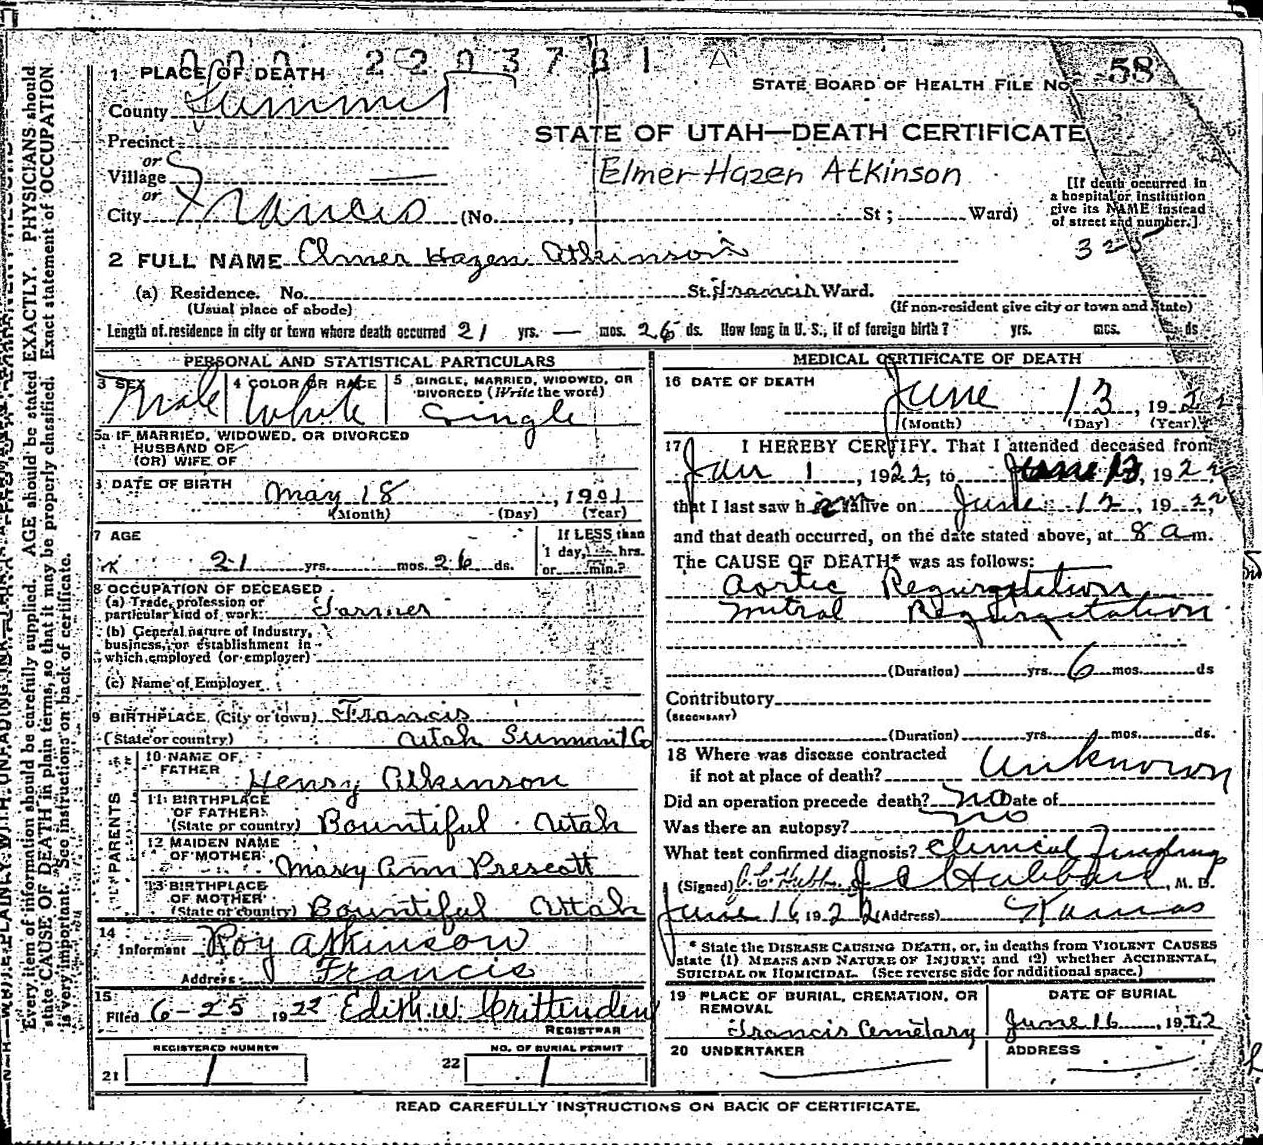 0 0 0 2 2 0 3 7 8 1 A
1 PLACE OF DEATH
STATE BOARD OF HEALTH FILE NO. 58
County Summit
STATE OF UTAH—DEATH CERTIFICATE
Precinct
or
Village
Elmer Hazen Atkinson
or
City Francis (No. , St ; Ward)
[If death occurred in
a hospital or institution
give its NAME instead
of street and number.]
325
2 FULL NAME Elmer Hazen Atkinson
(a) Residence. No. St. Francis Ward.
(Usual place of abode) (If non-resident give city or town and State)
Length of residence in city or town where death occurred 21 yrs. — mos. 26 ds. How long in U. S., if of foreign birth? yrs. mos. ds
PERSONAL AND STATISTICAL PARTICULARS
3 SEX Male
4 COLOR OR RACE White
5 SINGLE, MARRIED, WIDOWED, OR
DIVORCED (Write the word)
Single
5a IF MARRIED, WIDOWED, OR DIVORCED
HUSBAND OF
(OR) WIFE OF
DATE OF BIRTH May 18, 1901
(Month) (Day) (Year)
7 AGE
21 yrs. mos. 26 ds.
If LESS than
1 day, hrs.
or min.?
8 OCCUPATION OF DECEASED
(a) Trade, profession or
particular kind of work: Farmer
(b) General nature of industry,
business, or establishment in
which employed (or employer)
(c) Name of Employer
9 BIRTHPLACE (City or town) Francis
(State or country) Utah Summit Co
PARENTS
10 NAME OF
FATHER Henry Atkinson
11 BIRTHPLACE
OF FATHER
(State or country) Bountiful Utah
12 MAIDEN NAME
OF MOTHER Mary Ann Prescott
13 BIRTHPLACE
OF MOTHER
(State or country) Bountiful Utah
14
Informant Roy Atkinson
Address Francis
15
Filed 6-25 1922 Edith W. Crittenden
REGISTRAR
REGISTERED NUMBER
21
NO. OF BURIAL PERMIT
22
MEDICAL CERTIFICATE OF DEATH
16 DATE OF DEATH
June 13, 1922
(Month) (Day) (Year)
17 I HEREBY CERTIFY, That I attended deceased from
Jan 1, 1922, to June 13, 1922
that I last saw him alive on June 12, 1922,
and that death occurred, on the date stated above, at 8 a m.
The CAUSE OF DEATH* was as follows:
Aortic Regurgitation
Mitral Regurgitation
(Duration) yrs. 6 mos. ds
Contributory
(SECONDARY)
(Duration) yrs. mos. ds.
18 Where was disease contracted
if not at place of death? Unknown
Did an operation precede death? no Date of
Was there an autopsy? no
What test confirmed diagnosis? Clinical Findings
(Signed) J C Hubbard, M. D.
June 16, 1922 (Address) Kamas
* State the DISEASE CAUSING DEATH, or, in deaths from VIOLENT CAUSES
state (1) MEANS AND NATURE OF INJURY; and (2) whether ACCIDENTAL,
SUICIDAL OR HOMICIDAL. (See reverse side for additional space.)
19 PLACE OF BURIAL, CREMATION, OR
REMOVAL
Francis Cemetary
DATE OF BURIAL
June 16, 1922
20 UNDERTAKER
ADDRESS
READ CAREFULLY INSTRUCTIONS ON BACK OF CERTIFICATE.
Every item of information should be carefully supplied. AGE should be stated EXACTLY. PHYSICIANS should
state CAUSE OF DEATH in plain terms, so that it may be properly classified. Exact statement of OCCUPATION
is very important. See instructions on back of certificate.